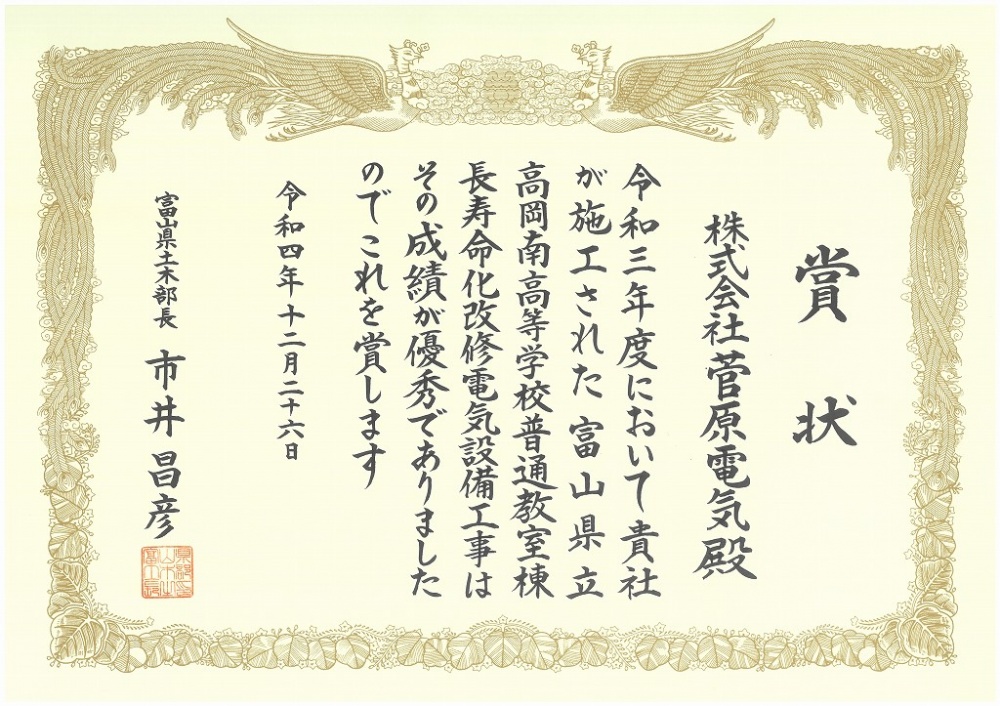 賞状
株式会社菅原電気殿
令和三年度において貴社
が施工された富山県立
高岡南高等学校普通教室棟
長寿命化改修電気設備工事は
その成績が優秀でありました
のでこれを賞します
令和四年十二月二十六日
富山県土木部長 市井昌彦